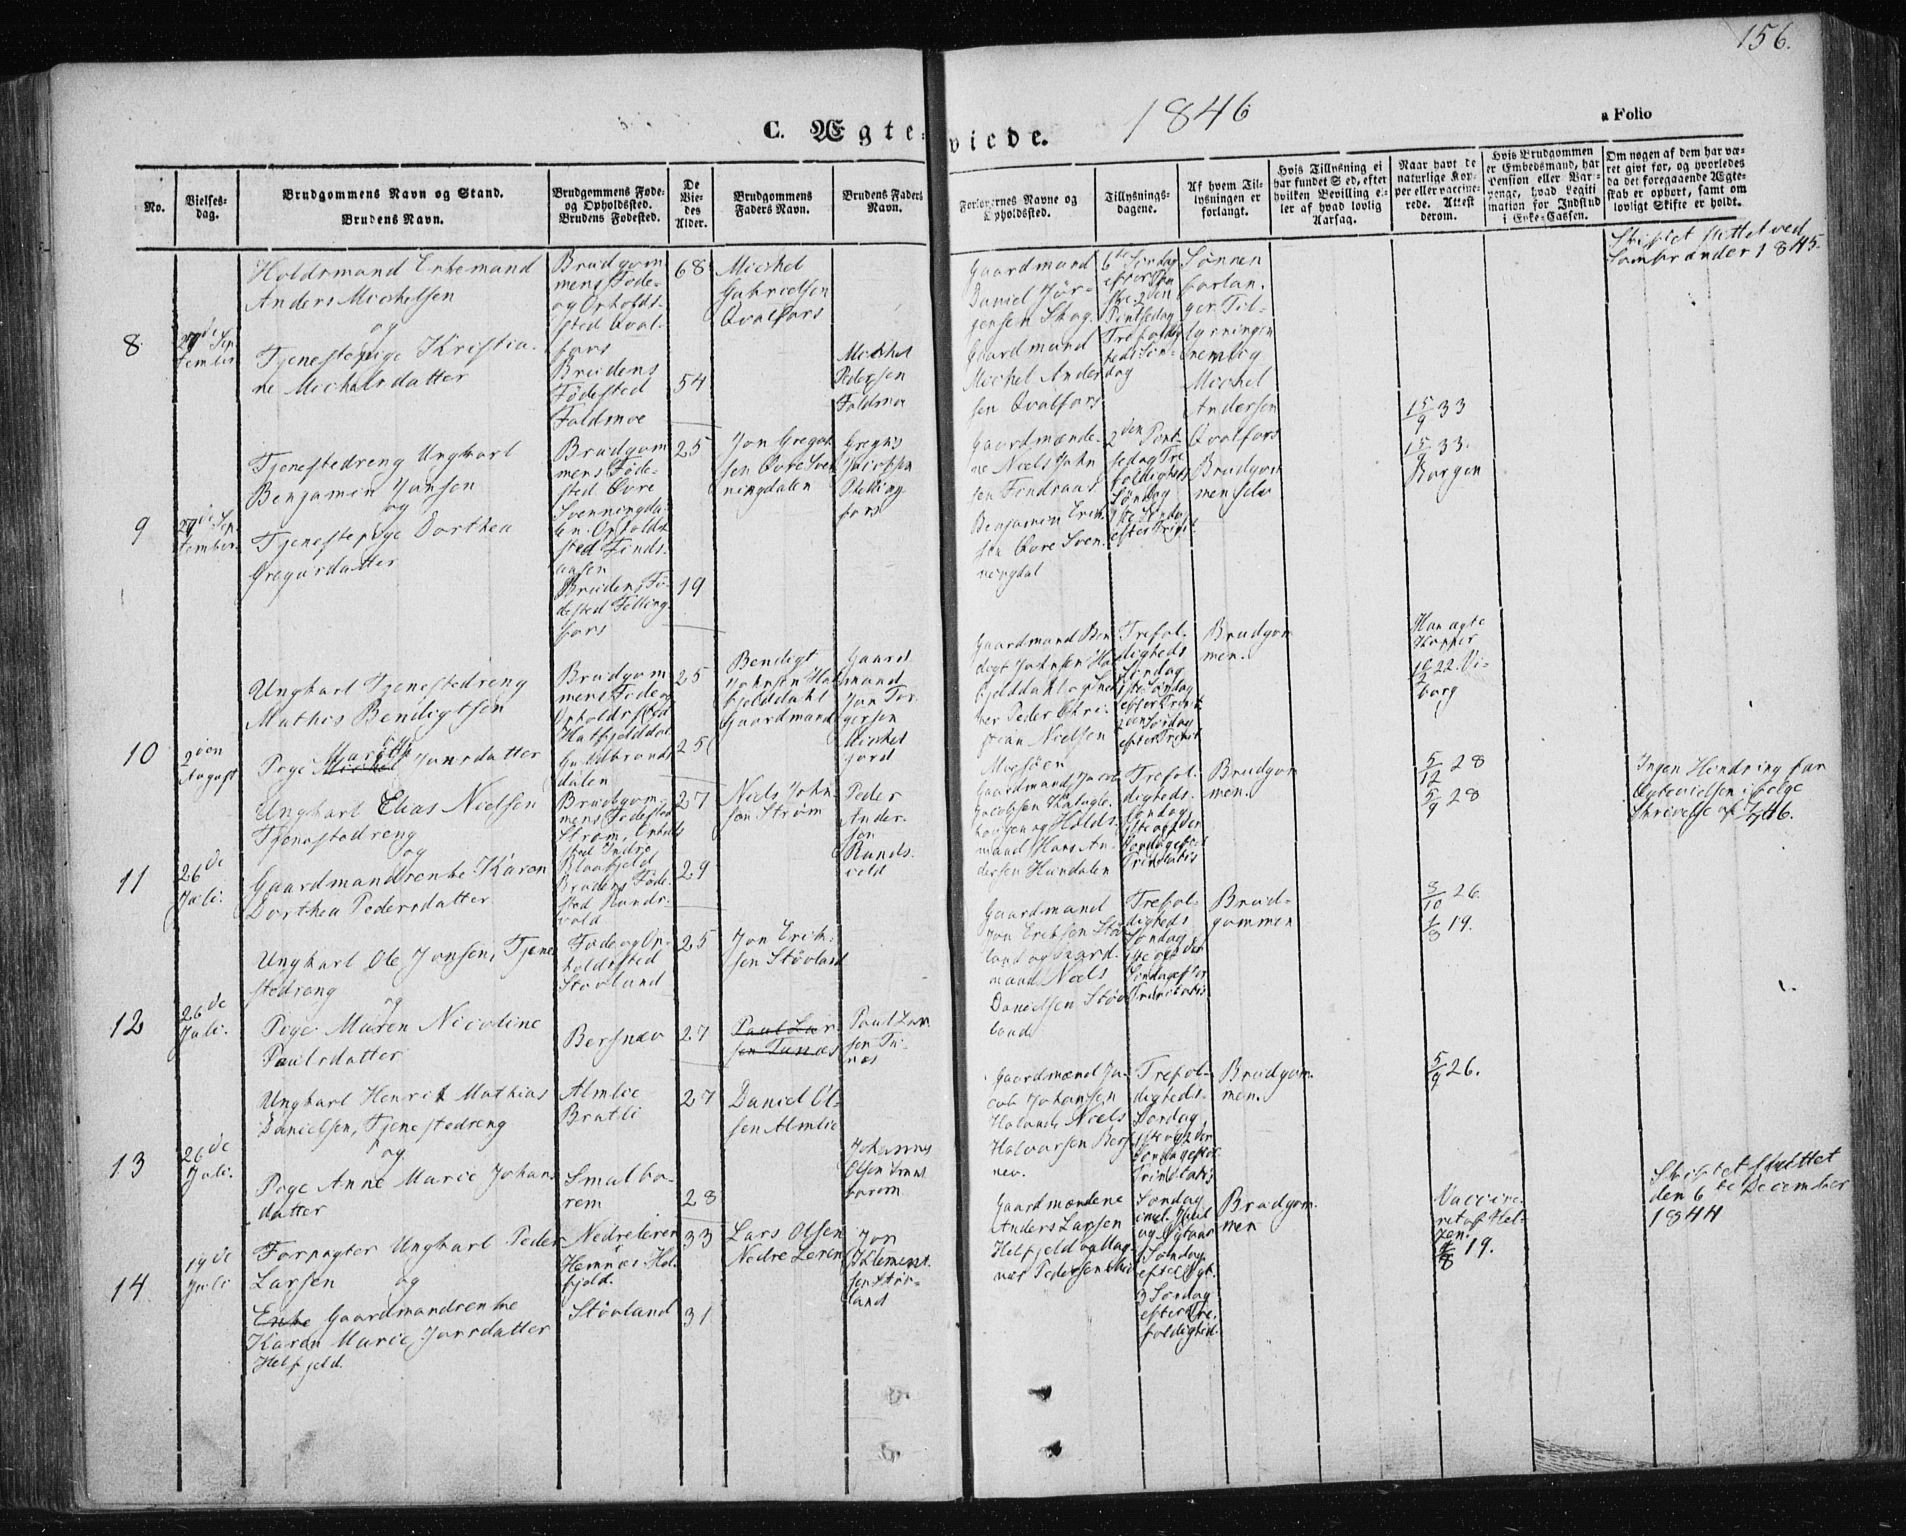 156.
C. Ægteviede.
1846
a Folio
No.
Vielsesdag.
Brudgommens Navn og Stand.
Brudens Navn.
Brudgommens Føde-
og Opholdssted.
Brudens Fødested.
De
Vie-
des
Alder.
Brudgommens
Faders Navn.
Brudens Faders
Navn.
Forlovernes Navne og
Opholdssted.
Tillysnings-
dagene.
Af hvem Til-
lysningen er
forlangt.
Hvis Tillysning ei
har fundet Sted, efter
hvilken Bevilling el-
ler af hvad lovlig
Aarsag.
Naar havt de
naturlige Kop-
per eller vaccine-
rede. Attest
derom.
Hvis Brudgommen
er Embedsmand, har
Pension eller Var-
penge, hvad Legiti
mation for Indskud
i Enke-Cassen.
Om nogen af dem har væ-
ret gift før, og hvorledes
da det foregaaende Ægte-
skab er ophørt, samt om
lovligt Skifte er holdt.
8
27de Sep-
tember
Holdsmand Enkemand
Anders Michelsen
og
Tjenestepige Kristia-
ne Michelsdatter
Brudgom
mens Føde-
og Opholds-
sted Qval-
fors
Brudens
Fødested
Foldmoe
68
54
Michel
Gabrielsen
Qvalfors
Michel
Pedersen
Foldmoe
Gaardmand
Daniel Jør-
gensen Skog
Gaardmand
Michel Ander
sen Qvalfors
6te Søndag
2den
Pintsedag
Trefoldig
heds Søn-
dag
Sønnen
forlan-
ger Til-
lysningen
nemlig
Michel
Andersen
Qvalfors
15/9 33
15/9 33.
Skiftet sluttet ved
1845.
9
27de Sep-
tember
Tjenestedreng Ungkarl
Benjamin Jonsen
og
Tjenestepige Dorthea
Gregusdatter
Brudgom
mens Føde-
sted Øvre
Svenningda-
len. Opholds
sted Finds-
aasen
Brudens Fø-
dested Felling-
fors
25
19
Jon Gregus
sen Øvre Sven
ningdalen
Gregus
Jacobsen
Felling-
fors
Gaardmænde-
ne Niels John
sen
Benjamin Erik-
sen Øvre Sven-
ningdal
2den Pint-
sedag Tre
foldigheds
Søndag
1ste Søndag
efter Trinit.
Brudgom
men selv
Borgen
10
2den
August
Ungkarl Tjenestedreng
Mathis Bendigtsen
Pige Marith Jonsdatter
Brudgom
mens Føde og
Opholdssted
Hatfjelddal
Guldbrands
dalen
25
25
Bendigt
Johnsen Hat
fjelddahl
Gaardmand
Gaard
mand
Jon Tor
gersen
Michel
jord
Gaardmand Ben
digt Johnsen Hat
fjelddahl og
Peder Chri-
stian Nielsen
Mosjöen
Trefol-
digheds
Søndag
1ste Søndag
efter Trinit.
2den Søndag
efter Trinit
Brudgom
men.
Han ægte
Kopper
22. Vi-
borg
11
26de
Juli.
Ungkarl Elias Nielsen
Tjenestedreng
og
Gaardmandsenke Karen
Dorthea Pedersdatter
Brudgom-
mens Fødested
Strøm, Opholds
sted Indre
Blaafjeld
Brudens Føde-
sted Runds-
vold
27
29
Niels John-
sen Strøm
Peder
Ander-
sen
Runds-
vold
Gaardmand Jacob
Jacobsen
og Holds-
mand Hans An-
dersen Hundalen
Trefol-
digheds
Søndag
1ste og 2den
Søndag efter
Trinitatis
Brudgom
men.
5/12 28
5/9 28
Ingen Hindring for
Ægtevielsen ifølge
Skrivelse af 46.
12
26de
Juli.
Ungkarl Ole Jonsen, Tjene
stedreng
og
Pige Maren Nicoline
Paulsdatter
Føde og Op-
holdssted
Støvland
Bersnæv
25
27
Jon Erik-
sen Støvland
Paul Lar-
sen Tunæs
Paul Lar
sen Tu-
næs
Gaardmand
Jon Eriksen Støv
land og Gaard-
mand Niels
Danielsen Støv
land
Trefol-
digheds
Søndag
1ste og 2den
Søndag efter
Trinitatis
Brud-
gommen
3/10 26.
1/3 19.
13
26de
Juli.
Ungkarl Henrik Mathias
Danielsen, Tjenestedreng
og
Pige Anne Marie Johans
datter
Almlie
Bratli
Smalbo-
rem
27
28
Daniel Ol-
sen Almlie
Johannes
Olsen Smal
borem
Gaardmænd Ja-
cob Johansen
Niels
Halvorsen Bers-
nev.
Trefol-
digheds-
Søndag,
1ste og 2den
Søndag efter
Trinitatis
Brudgom-
men.
5/9 26.
14
19de
Juli
Forpagter Ungkarl Peder
Larsen og
Enke Gaardmandsenke
Karen Marie Jonsdatter
Helfjeld.
Nedreleren
Hemnæs Hel-
fjeld.
Støvland
33
31
Lars Olsen
Nedre Leren
Jon
Klement
sen Støv-
land
Gaardmændene
Anders Larsen
Helfjeld og Mag-
nus Pedersen
Søndag
imel. Juul
og Nytaar
1 Søndag
efter Nyt.
3 Søndag
efter Tre-
foldighed.
Brudgom-
men
Vaccine-
ret af Hel-
zen.
1/8 19.
Skiftet sluttet
den 6te December
1844